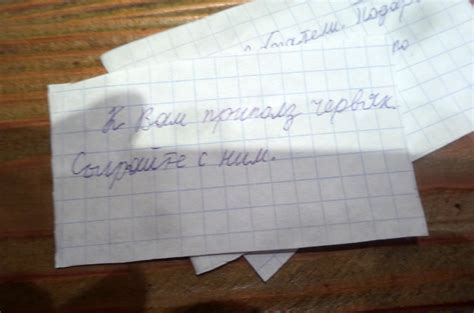 Подар
по
К Вам приполз червяк.
Сыграйте с ним.